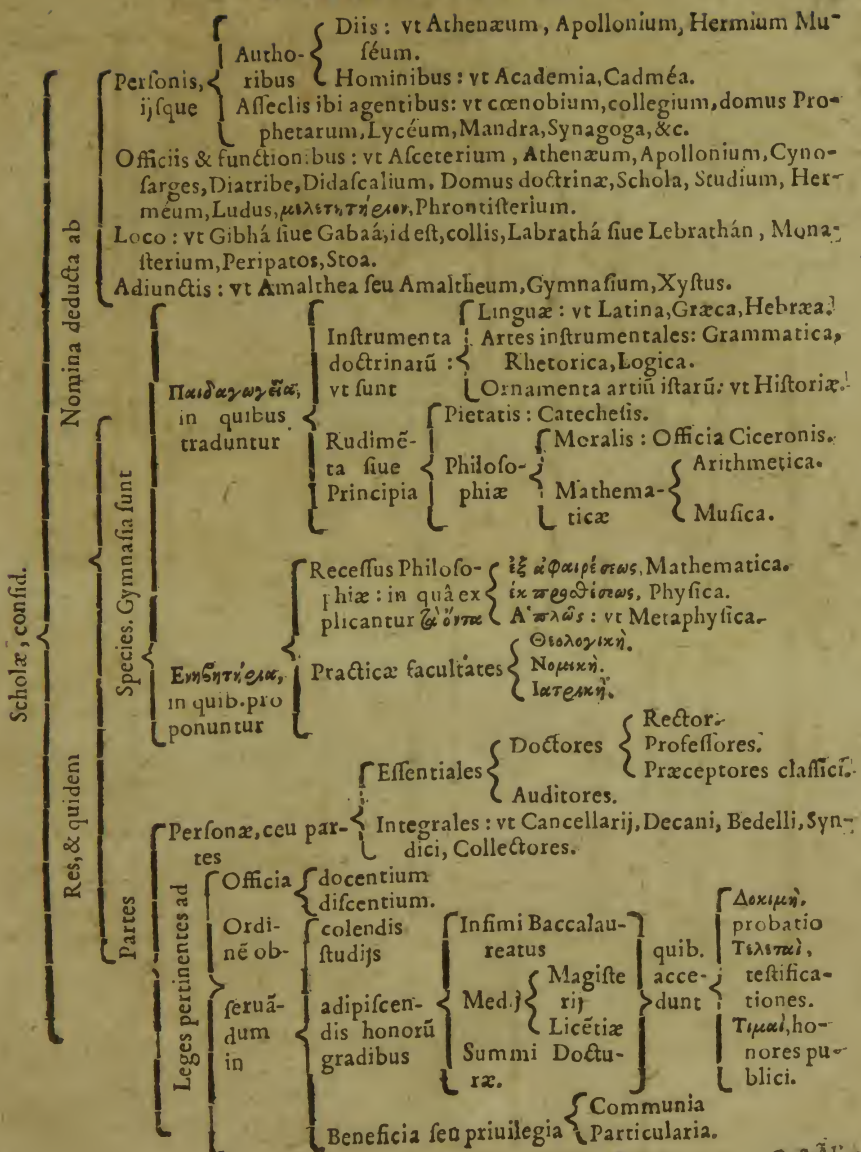 Scholæ, consid.
Nomina deducta ab
Personis,
ijsque
Autho-
ribus
Diis: vt Athenæum, Apollonium, Hermium Mu-
séum.
Hominibus: vt Academia, Cadméa.
Asseclis ibi agentibus: vt cœnobium, collegium, domus Pro-
phetarum, Lycéum, Mandra, Synagoga, &c.
Officiis & functionibus: vt Asceterium, Athenæum, Apollonium, Cyno-
sarges, Diatribe, Didascalium, Domus doctrinæ, Schola, Studium, Her-
méum, Ludus, Phrontisterium.
Loco: vt Gibhá siue Gabaá, id est, collis, Labrathá siue Lebrathán, Mona-
sterium, Peripatos, Stoa.
Adiunctis: vt Amalthea seu Amaltheum, Gymnasium, Xystus.
Res, & quidem
Species. Gymnasia sunt
Παιδαγωγεῖα,
in quibus
traduntur
Instrumenta
doctrinarū:
vt sunt
Linguæ: vt Latina, Græca, Hebræa.
Artes instrumentales: Grammatica,
Rhetorica, Logica.
Ornamenta artiū istarū: vt Historiæ.
Rudimē-
ta siue
Principia
Pietatis: Catechesis.
Philoso-
phiæ
Moralis: Officia Ciceronis.
Mathema-
ticæ
Arithmetica.
Musica.
in quib. pro
ponuntur
Recessus Philoso-
phiæ: in quâ ex
plicantur
ἐξ ἀφαιρέσεως, Mathematica.
ἐκ προσθέσεως, Physica.
Ἁπλῶς: vt Metaphysica.
Practicæ facultates
Θεολογικὴ.
Νομικὴ.
Ιατρικὴ.
Partes
Personæ, ceu par-
tes
Essentiales
Doctores
Rector.
Professores.
Præceptores classici.
Auditores.
Integrales: vt Cancellarij, Decani, Bedelli, Syn-
dici, Collectores.
Leges pertinentes ad
Officia
docentium
discentium.
Ordi-
nē ob-
seruā-
dum
in
colendis
studijs
adipiscen-
dis honorū
gradibus
Infimi Baccalau-
reatus
Medij
Magiste
rij
Licētiæ
Summi Doctu-
ræ.
quib.
acce-
dunt
Δοκιμὴ,
probatio
Τελεταὶ,
testifica-
tiones.
Τιμαὶ, ho-
nores pu-
blici.
Beneficia seu priuilegia
Communia
Particularia.